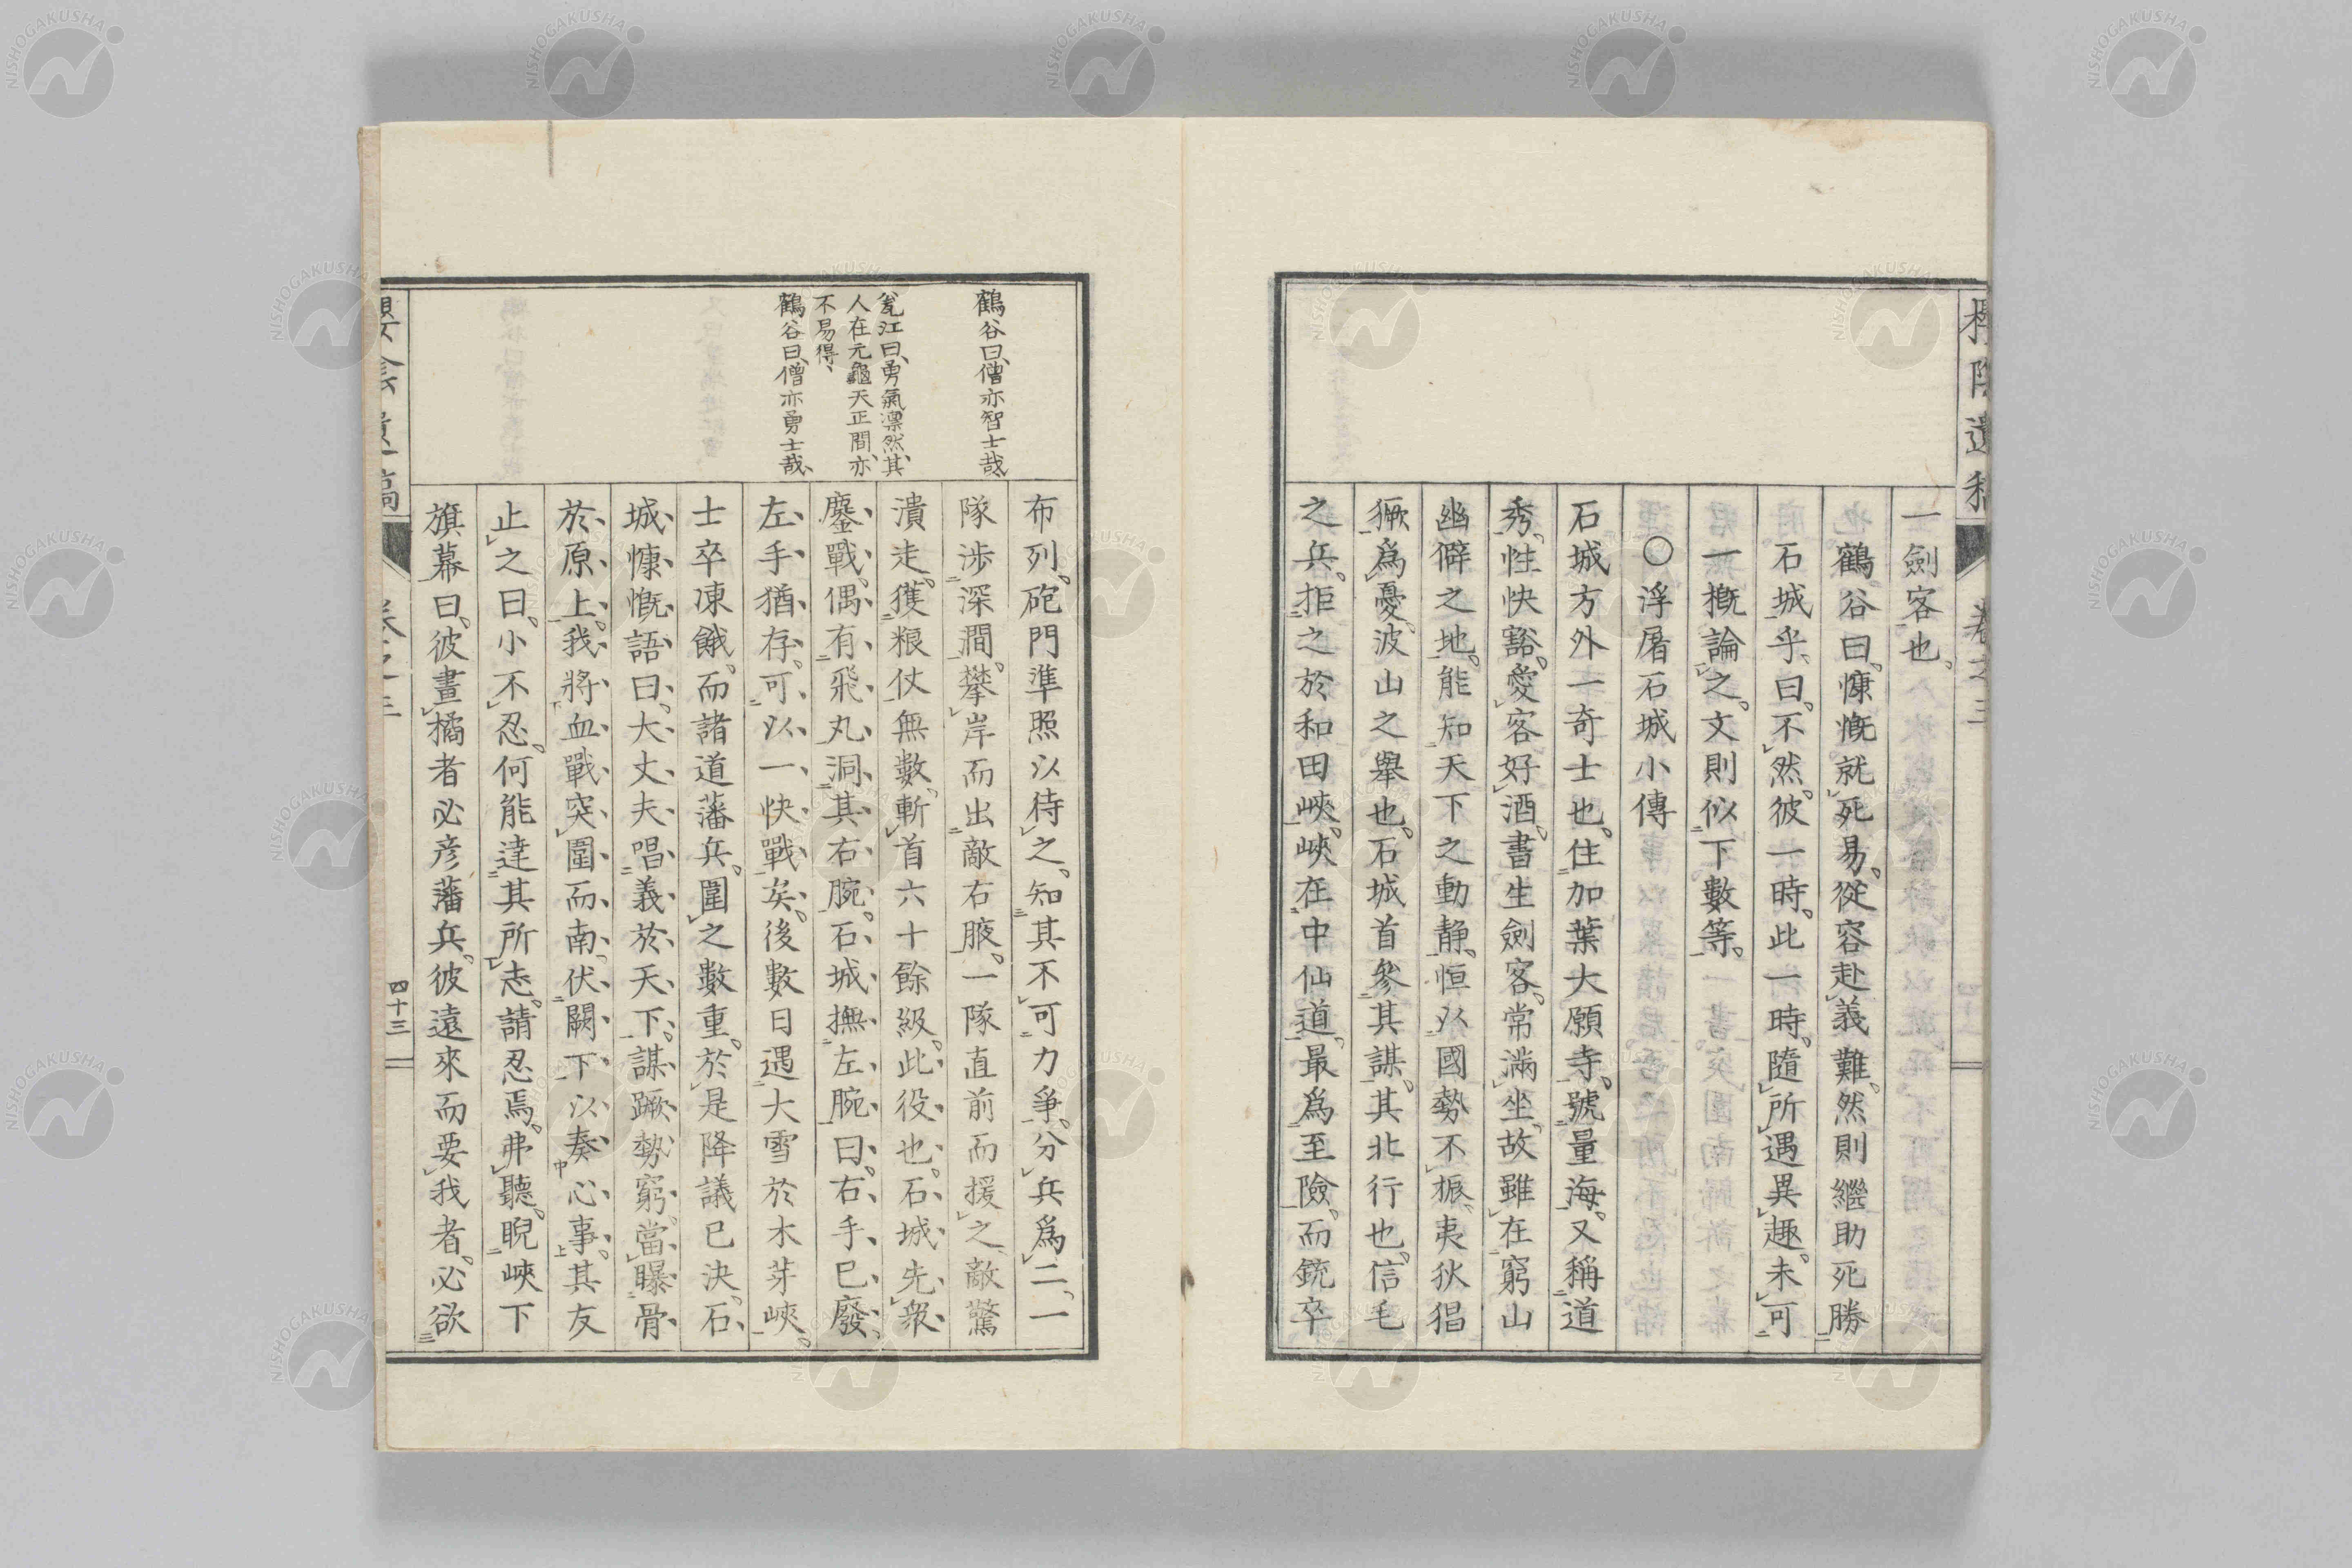 一劍客也。
鶴谷曰。慷慨就死易。從容赴義難。然則繼助死勝
石城乎。曰。不然。彼一時。此一時。隨所遇異趣。未可
一概論之。文則似下數等。
○浮屠石城小傳
石城方外一奇士也。住加葉大願寺。號量海。又稱道
秀。性快豁。愛客好酒。書生劍客。常滿坐。故雖在窮山
幽僻之地。能知天下之動靜。恒以國勢不振、夷狄猖
獗爲憂。波山之舉也。石城首參其謀。其北行也。信毛
之兵。拒之於和田峽。峽在中仙道。最爲至險。而銃卒
布列。砲門準照以待之。知其不可力爭。分兵爲二。一
隊渉深澗。攀岸而出敵右腋。一隊直前而援之、敵驚
潰走。獲粮仗無數。斬首六十餘級。此役也。石城先衆
鏖戰。偶有飛丸洞其右腕。石城撫左腕曰。右手已廢、
左手猶存。可以一快戰矣。後數日遇大雪於木芽峽。
士卒凍餓。而諸道藩兵。圍之數重。於是降議已決。石
城慷慨語曰。大丈夫唱義於天下。謀蹶勢窮。當曝骨
於原上。我將血戰突圍而南。伏闕下以奏中心事。其友
止之曰。小不忍。何能達其所志。請忍焉。弗聽。睨峽下
旗幕曰。彼畫橘者必彦藩兵。彼遠來而要我者。必欲
鶴谷曰、僧亦智士哉、
瓮江曰、勇氣凛然、其
人在元龜天正間、亦
不易得、
鶴谷曰、僧亦勇士哉、
卷之三
四十三
NISHOGAKUSHA